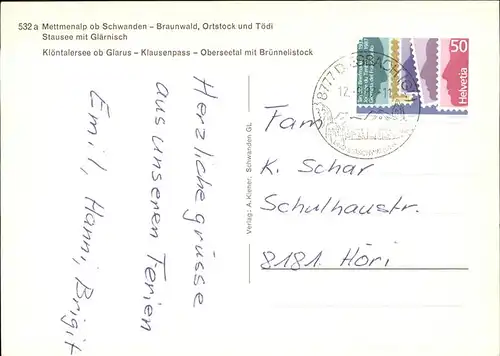 532 a Mettmenalp ob Schwanden – Braunwald, Ortstock und Tödi
Stausee mit Glärnisch
Klöntalersee ob Glarus – Klausenpass – Oberseetal mit Brünnelistock
Herzliche grüsse
aus unseren Ferien
Emil, Hanni, Brigit
Verlag: A. Kiener, Schwanden GL
8777 DIESBACH
12.
50
Helvetia
Fam
K. Schar
Schulhaustr.
8181 Höri